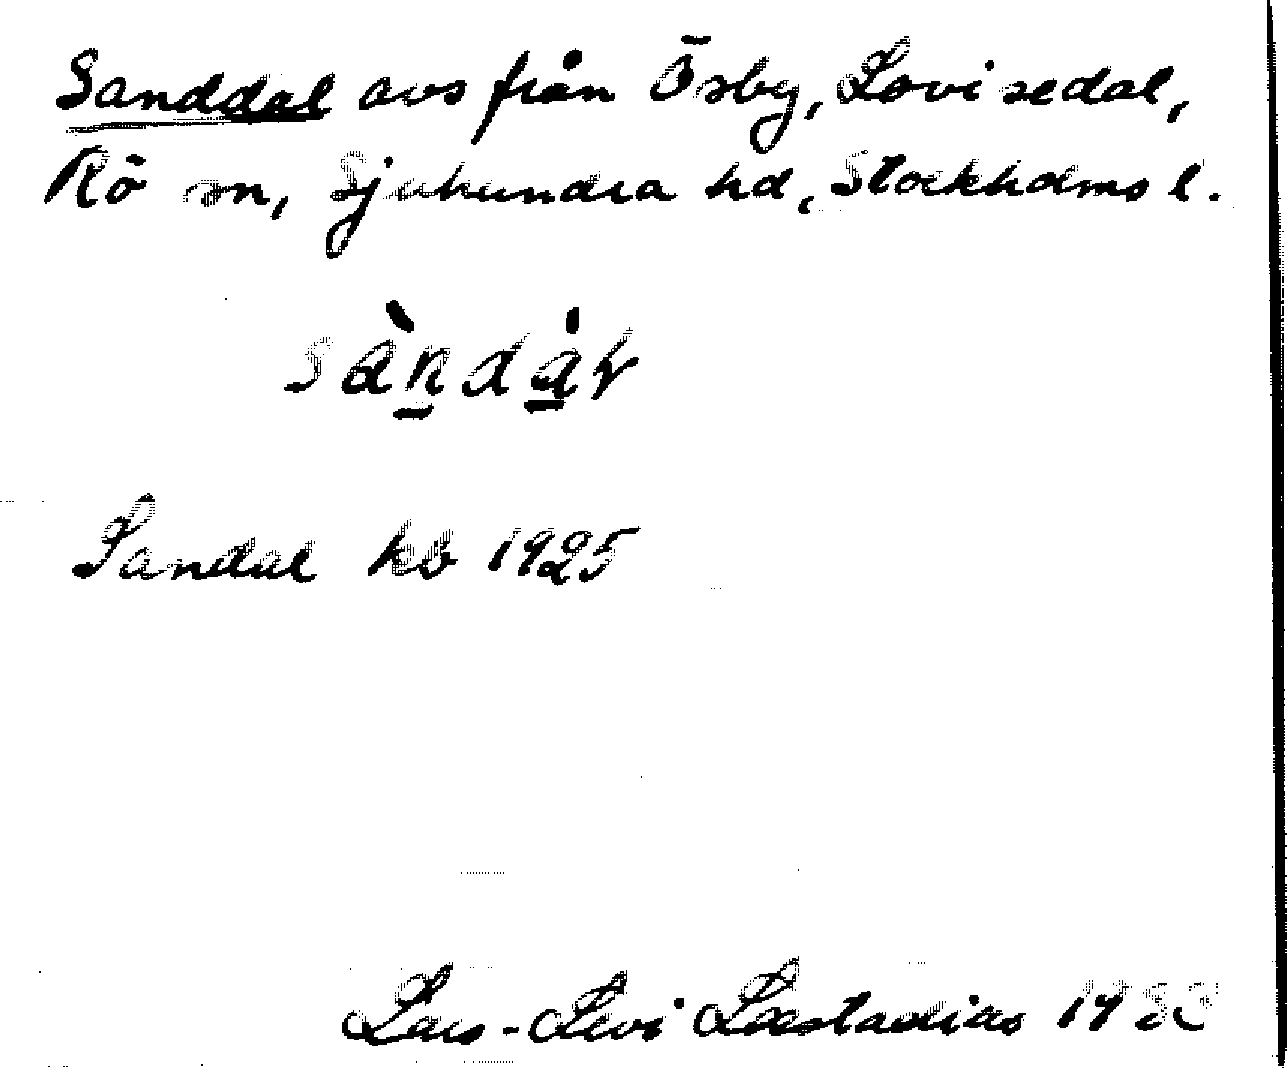 Sanddal avs från Ösby, Lovisedal,
Rö sn, Sjuhundra hd, Stockholms l.
sàndàl
Sandal kb 1925
Lars-Levi Læstadius 1933